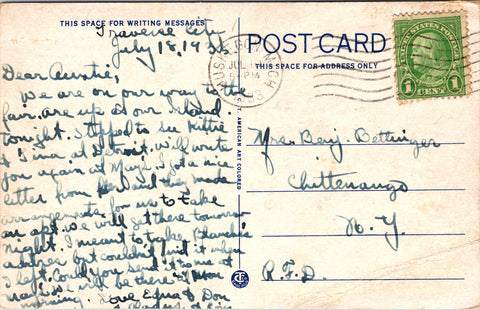 THIS SPACE FOR WRITING MESSAGES
Traverse City
July 18, 1933
Dear Auntie,
We are on our way to the
fair. are up at our Island
tonight. Stopped to see Kittie
& Tina at Detroit. Will write
you again at May's. I got a nice
letter from her and they made
arrangements for us to take
an apt. we will get there tomorrow
night. I meant to take Blanche's
address but couldn't find it when
I left. Could you send it to me at
May's we will be there til Mon
morning. Love Edna & Don
POST CARD
THIS SPACE FOR ADDRESS ONLY
MUSKEGON MICH
JUL
5-PM
1933
UNITED STATES POSTAGE
1 CENT 1
AMERICAN ART COLORED
Mrs. Benj. Bettinger
Chittenango
N.Y.
R.F.D.